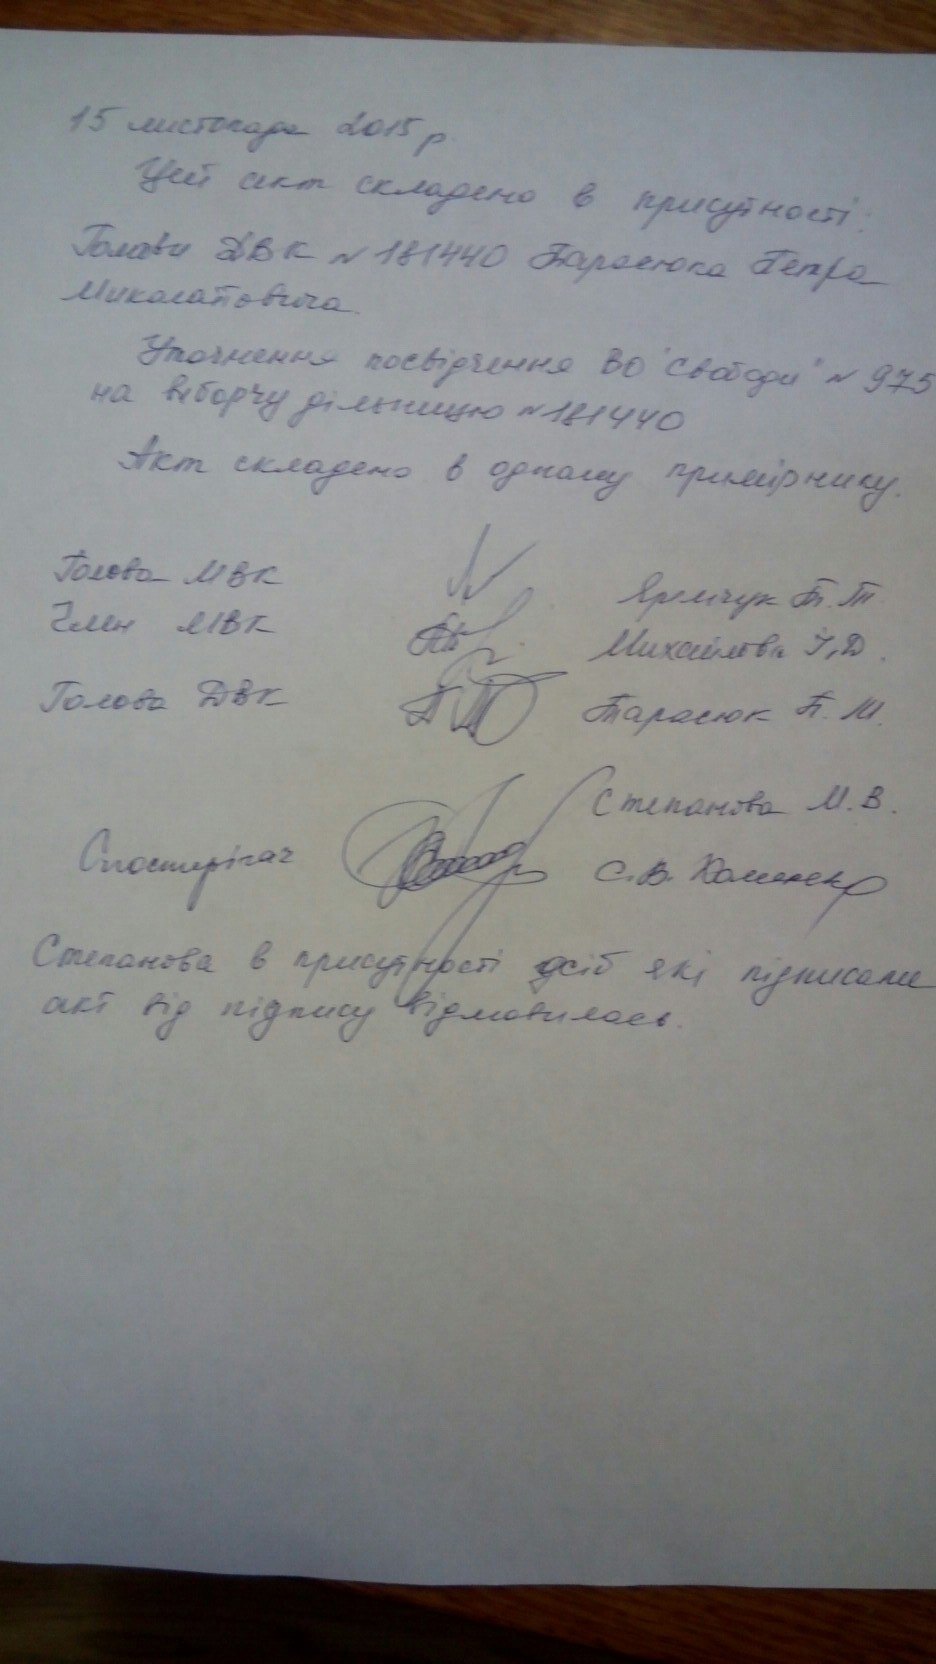 15 листопада 2015 р.
Цей акт складено в присутності:
Голови ДВК №181440 Тарасюка Петра
Миколайовича.
Уточнення посвідчення ВО "Свобода" №975
на виборчу дільницю №181440
Акт складено в одному примірнику.
Голова МВК Яремчук П. Т.
Член МВК Михайлова І. Д.
Голова ДВК Тарасюк П. М.
Степанова М. В.
Спостерігач С. В. Хоменко
Степанова в присутності осіб які підписали
акт від підпису відмовилась.